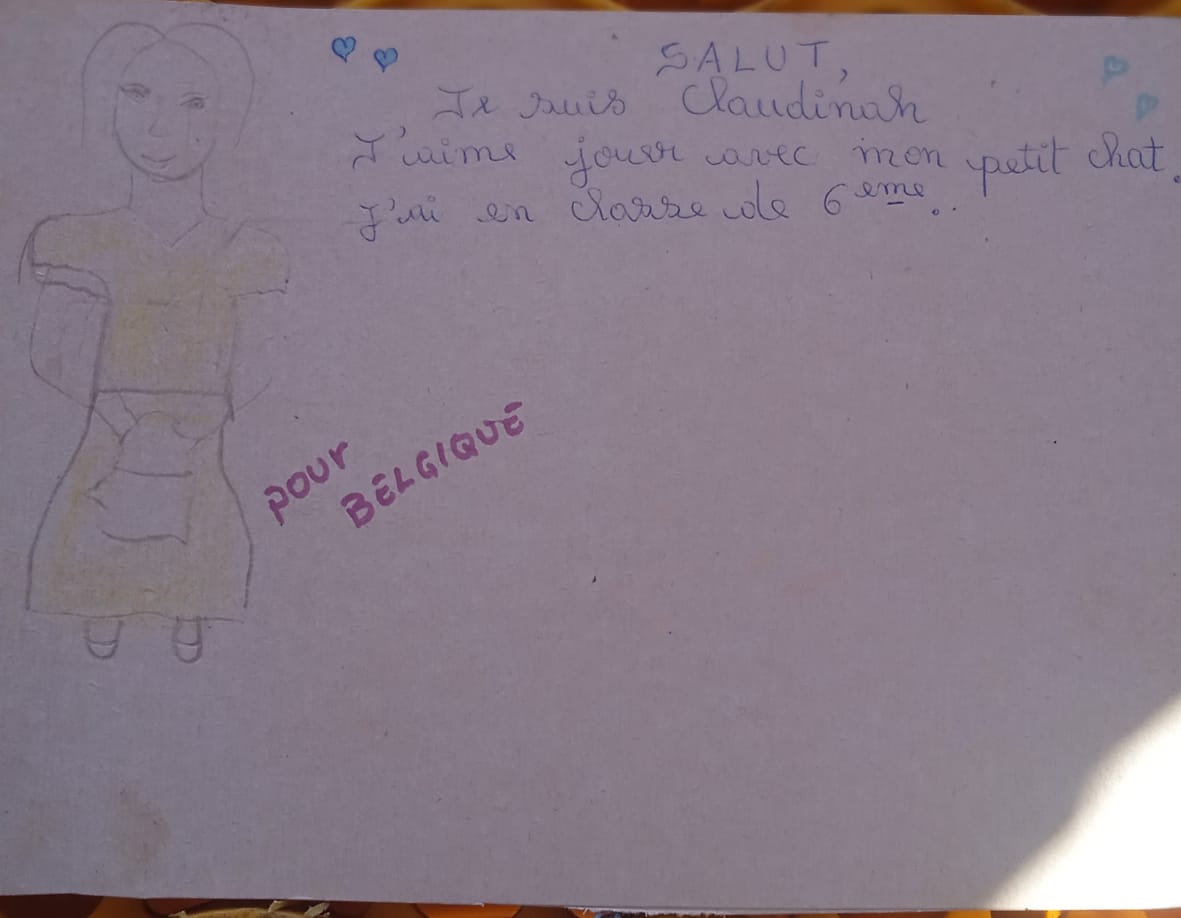 SALUT,
Je suis Claudinah
J'aime jouer avec mon petit chat.
J'ai en classe de 6eme..
POUR
BELGIQUE